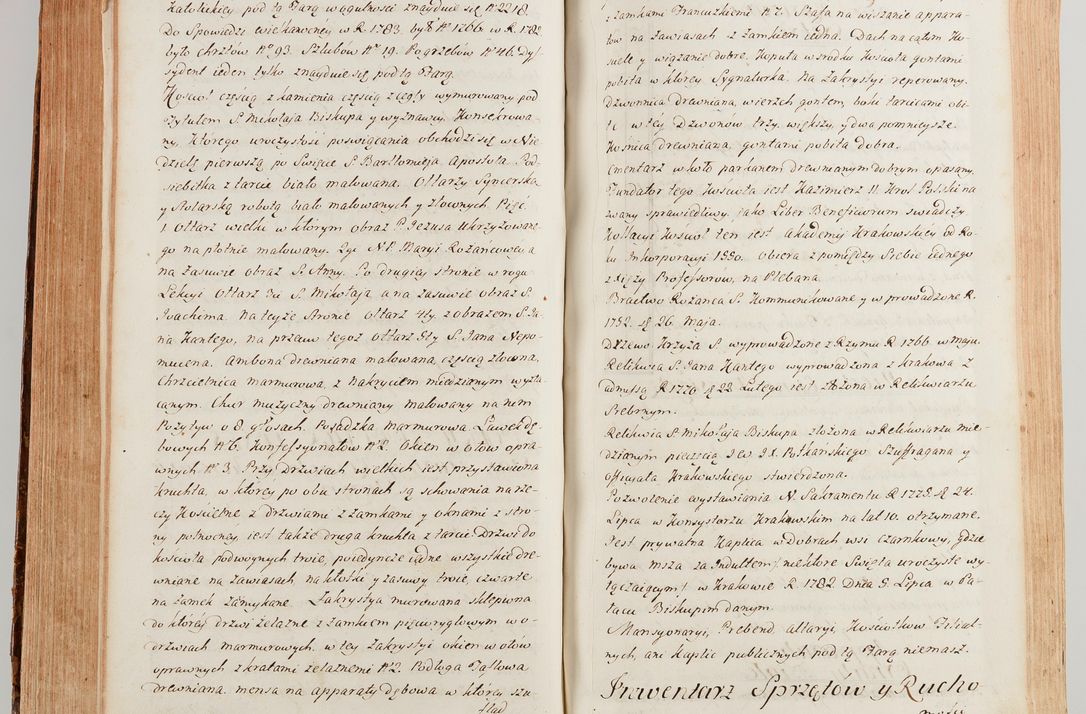 Katolickiey pod tą Parą w ogulności znayduie się Nº 2218.
Do Spowiedzi wielkanocney w R. 1783. był Nº 1266. w R. 1782
było chrztow Nº 93. Szlubow Nº 19. Pogrzebow Nº 46. Dys-
sydent ieden tylko znayduie się pod tą Parą.
Kosciół częścią z kamienia częścią z cegły wymurowany pod
tytułem S. Mikołaja Biskupa y wyznawcy. Konsekrowa-
ny, którego uroczystość poswięcania obchodzi się w Nie-
dzielę pierwszą po Swięcie S. Bartłomieja Apostoła. Pod-
siebitka z tarcic biało malowana. Ołtarzy Snycerską
y Stolarską robotą biało malowanych y złoconych Pięć
1. Ołtarz wielki w którym obraz P. Jezusa Ukrzyżowane-
go na płotnie malowany. 2gi N. P. Maryi Rożańcowey a
na zasuwie obraz S. Anny. Po drugiey stronie w rogu
Lekcyi Ołtarz 3ci S. Mikołaja a na zasuwie obraz S.
Joachima. Na teyże stronie Ołtarz 4ty z obrazem S. Ja-
na Kantego, na przeciw tegoż ołtarz 5ty S. Jana Nepo-
mucena. Ambona drewniana malowana, częscią złocona,
Chrzcielnica marmurowa, z nakryciem miedzianym wyzła-
canym. Chur muzyczny drewniany malowany na nim
Pozytyw o 8. głosach. Posadzka marmurowa. Ławek dę-
bowych Nº 6. Konfessyonałow Nº 2. Okien w ołow opra-
wnych Nº 3. Przy Drzwiach wielkich iest przystawiona
kruchta, w ktorey po obu stronach są schowania na rze-
czy Koscielne z drzwiami z zamkami y oknami z stro-
ny pułnocney iest także druga kruchta z tarcic. Drzwi do
kościoła podwoynych troie, poiedyncze iedne wszystkie dre-
wniane na zawiasach, na kłotki y zasuwy troie, czwarte
na zamek zamykane. Zakrystya murowana sklepiona
do ktorey drzwi żelazne z zamkiem pięcioryglowym w o-
drzwiach marmurowych. w tey Zakrystyi okien w ołów
oprawnych z kratami żelaznemi Nº 2. Podłoga Taflowa
drewniana. mensa na apparaty dębowa w ktorey szu-
flad
z zamkami Francuzkiemi Nº 7. Szafa na wieszanie appara-
tow na zawiasach z zamkiem iedna. Dach na całym Ko-
ściele y wiązanie dobre. Kopuła w srodku kościoła gontami
pobita w ktorey Sygnaturka. Na Zakrystyi reperowany.
Dzwonnica drewniana, wierzch gontem, boki tarcicami obi-
te w tey Dzwonów trzy. większy, y dwa pomnieysze.
Kośnica drewniana, gontami pobita dobra.
Cmentarz w koło parkanem drewnianym dobrym opasany.
Fundator tego Kosciola iest Kazimierz II. Krol Polski na-
zwany sprawiedliwy, jako Liber Beneficiorum swiadczy
Kollacyi Kosciół ten iest Akademij Krakowskiey od Ro-
ku Inkorporacyi 1550. Obiera z pomiędzy Siebie iednego
z Xięży Professorów, na Plebana.
Bractwo Rożańca S. Kommunikowane y wprowadzone R.
1752. d. 26. Maja.
Drzewo Krzyża S. wyprowadzone z Rzymu R 1766 w Maju.
Relikwia S. Jana Kantego wyprowadzona z Krakowa z
admissą R. 1770 d 22 Lutego iest złożona w Relikwiarzu
Srebrnym.
Relikwia S. Mikołaja Biskupa złożona w Relikwiarzu mie-
dzianym pieczęcią JW. JX. Potkańskiego Szuffragana y
Officyała Krakowskiego stwierdzona.
Pozwolenie wystawiania N. Sakramentu R 1778. d. 24.
Lipca w Konsystorzu Krakowskim na lat 10. otrzymane.
Jest prywatna Kaplica w Dobrach wsi Czarnkowy, gdzie
bywa msza za Indultem /: niektóre Święta uroczyste wy-
łączaiącym :/ w Krakowie R 1782. Dnia 8. Lipca w Pa-
łacu Biskupim danym.
Mansyonaryi, Prebend, altaryi, Kościołkow Filial-
nych, ani kaplic publicznych pod tą Parą niemasz.
Inwentarz Sprzętów y Rucho-
mości